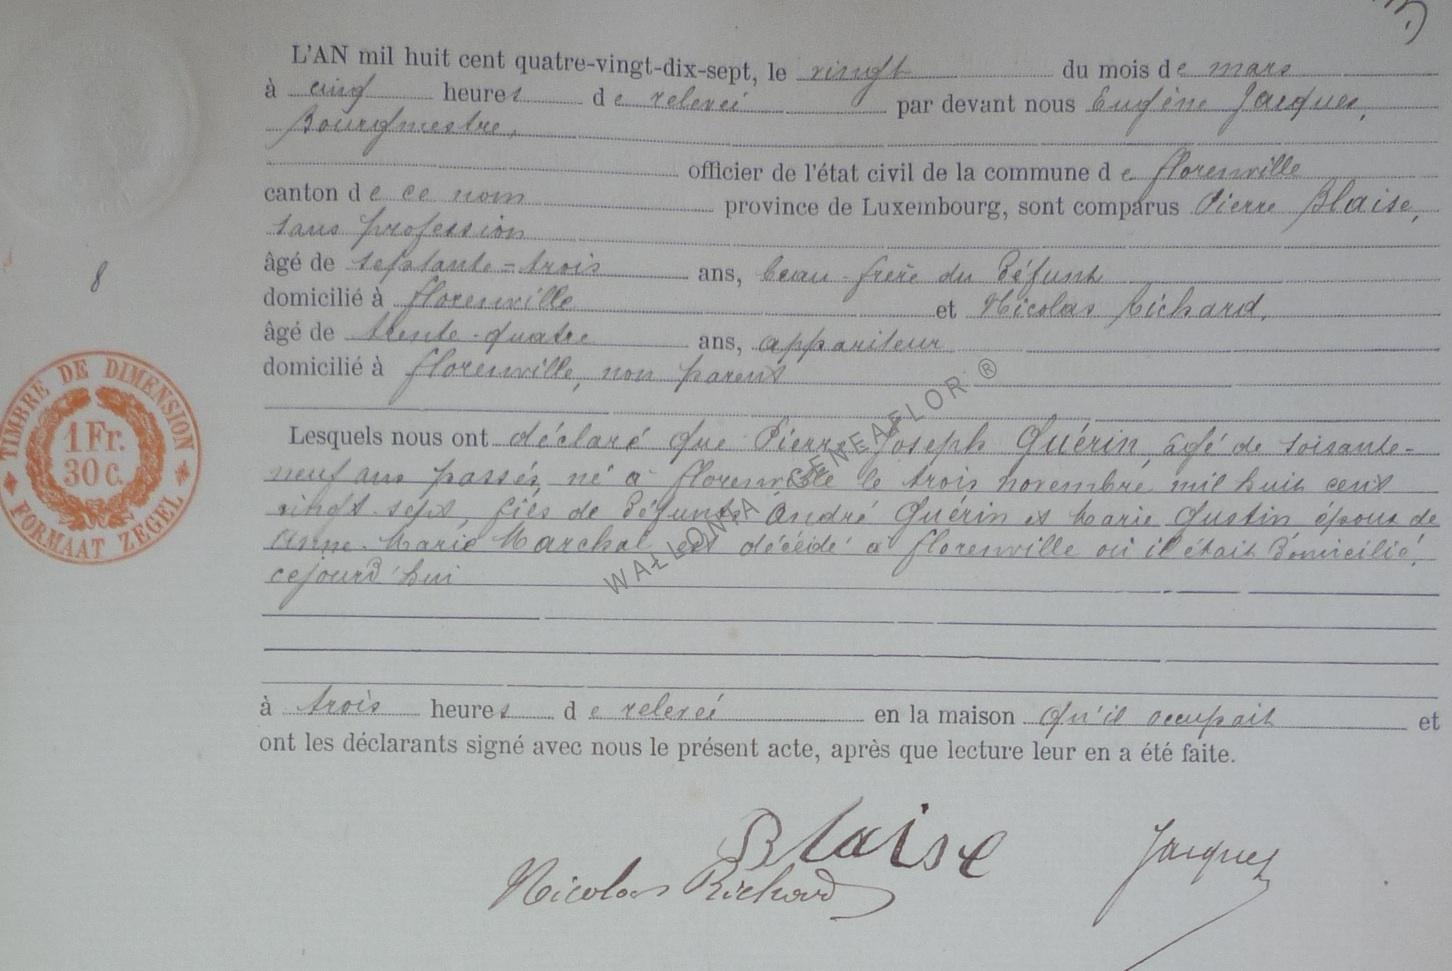 L'AN mil huit cent quatre-vingt-dix-sept, le vingt du mois de mars
à cinq heures de relevée par devant nous Eugène Jacques,
Bourgmestre,
officier de l'état civil de la commune de Florenville
canton de ce nom province de Luxembourg, sont comparus Pierre Blaise,
sans profession
âgé de septante-trois ans, beau-frère du défunt
domicilié à Florenville et Nicolas Richard,
âgé de trente-quatre ans, appariteur
domicilié à Florenville, non parent
Lesquels nous ont déclaré que Pierre Joseph Guérin, âgé de soixante-
neuf ans passés, né à Florenville le trois novembre mil huit cent
vingt-sept, fils de défunts André Guérin et Marie Gustin époux de
Anne-Marie Marchal est décédé à Florenville où il était domicilié,
cejourd'hui
à trois heures de relevée en la maison qu'il occupait et
ont les déclarants signé avec nous le présent acte, après que lecture leur en a été faite.
Blaise
Jacques
Nicolas Richard
8
TIMBRE DE DIMENSION
1 Fr.
30 c.
FORMAAT ZEGEL
WALLONIA GENEAFLOR ®